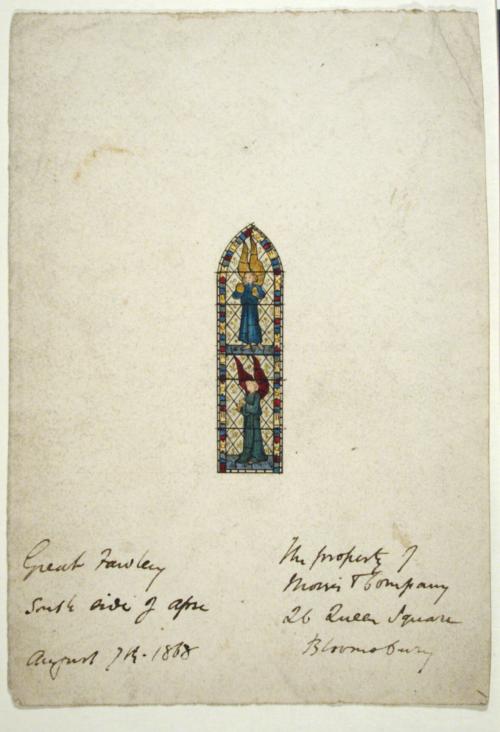 Great Fawley
South side of apse
August 7th. 1868
The property of
Morris & Company
26 Queen Square
Bloomsbury